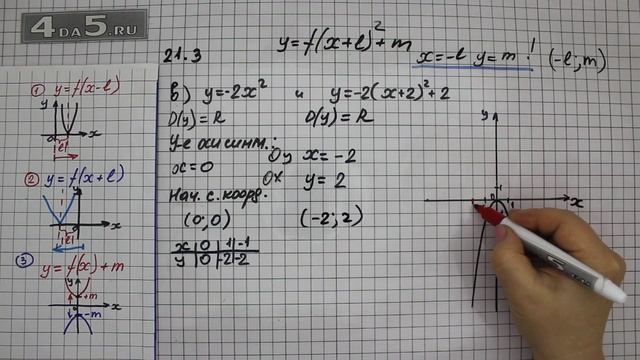 4DA5.RU
21.3
y=f(x+l)²+m
x=-l y=m ! (-l;m)
① y=f(x-l)
y
0
x
l
② y=f(x+l)
y
x
l
③ y=f(x)+m
y
+m
x
-m
в) y=-2x² и y=-2(x+2)²+2
D(y)=R D(y)=R
У-е оси симм.:
x=0 Oy x=-2
Ox y=2
Нач. с. коорд.
(0;0) (-2;2)
x | 0 | 1 | -1
y | 0 | -2 | -2
y
x
1